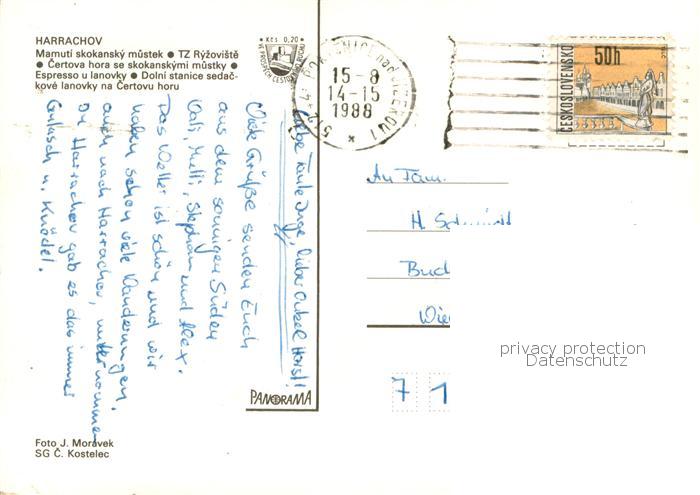 HARRACHOV
Mamutí skokanský můstek • TZ Rýžoviště
• Čertova hora se skokanskými můstky •
Espresso u lanovky • Dolní stanice sedač-
kové lanovky na Čertovu horu
Kčs 0,20
15-8
14-15
1988
ČESKOSLOVENSKO
50h
Liebe Tante Inge, lieber Onkel Horst!
Viele Grüße senden Euch
aus dem sonnigen Süden
Uli, Stephan und Alex.
Das Wetter ist schön und wir
haben schon viele Wanderungen,
auch nach Harrachov, unternommen
In Harrachov gab es das immer
Gulasch u. Knödel.
PANORAMA
An Fam.
H.
Buch
7 1
privacy protection
Datenschutz
Foto J. Morávek
SG Č. Kostelec